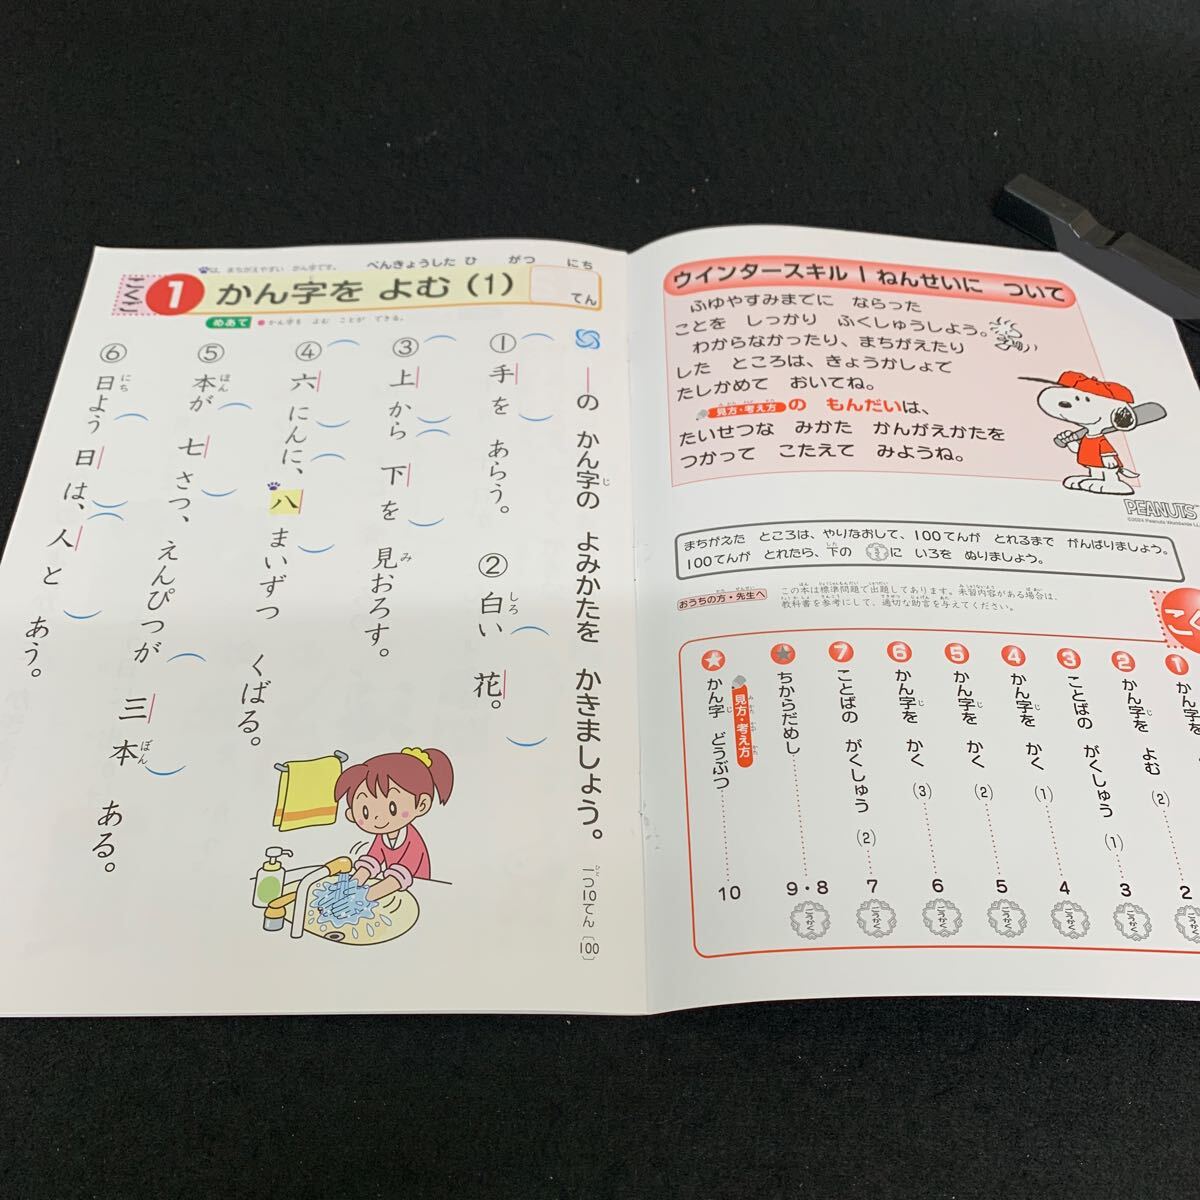 ウインタースキル1ねんせいに ついて
ふゆやすみまでに ならった
ことを しっかり ふくしゅうしよう。
わからなかったり、まちがえたり
した ところは、きょうかしょで
たしかめて おいてね。
見方・考え方の もんだいは、
たいせつな みかた かんがえかたを
つかって こたえて みようね。
PEANUTS
まちがえた ところは、やりなおして、100てんが とれるまで がんばりましょう。
100てんが とれたら、下の に いろを ぬりましょう。
おうちの方・先生へ
この本は標準問題で出題してあります。未習内容がある場合は、
教科書を参考にして、適切な助言を与えてください。
1 かん字を
2 かん字を よむ (2) 2
3 ことばの がくしゅう (1) 3
4 かん字を かく (1) 4
5 かん字を かく (2) 5
6 かん字を かく (3) 6
7 ことばの がくしゅう (2) 7
★ ちからだめし 9・8
★ 見方・考え方
かん字 どうぶつ 10
ごうかく
ごうかく
ごうかく
ごうかく
ごうかく
ごうかく
こくご
1 かん字を よむ (1)
は、まちがえやすい かん字です。
べんきょうした ひ がつ にち
てん
めあて ●かん字を よむ ことが できる。
―の かん字の よみかたを かきましょう。
一つ10てん〔100〕
① 手を あらう。
② 白い 花。
③ 上から 下を 見おろす。
④ 六にんに、八まいずつ くばる。
⑤ 本が 七さつ、えんぴつが 三本 ある。
⑥ 日よう日は、人と あう。